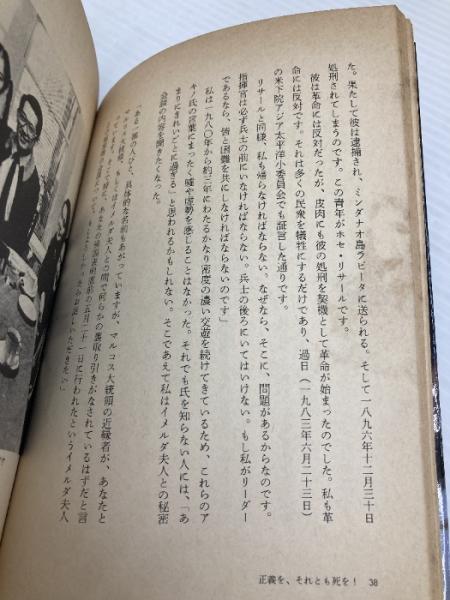 た。果たして彼は逮捕され、ミンダナオ島ラピータに送られる。そして一八九六年十二月三十日
処刑されてしまうのです。この青年がホセ・リサールです。
彼は革命には反対だったが、皮肉にも彼の処刑を契機として革命が始まったのでした。私も革
命には反対です。それは多くの民衆を犠牲にするだけであり、過日(一九八三年六月二十三日)
の米下院アジア太平洋小委員会でも証言した通りです。
リサールと同様、私も帰らなければならない。なぜなら、そこに、問題があるからなのです。
指揮官は必ず兵士の前にいなければならない。兵士の後ろにいてはいけない。もし私がリーダー
であるなら、皆と困難を共にしなければならないのです」
私は一九八〇年から約三年にわたるかなり密度の濃い交遊を続けてきているため、これらのア
キノ氏の言葉にまったく嘘や虚勢を感じることはなかった。それでも氏を知らない人には、「あ
まりにきれいごとに過ぎる」と思われるかもしれない。そこであえて私はイメルダ夫人との秘密
会談の内容を聞きたくなった。
ある一部の人びと、具体的な名前もあがっていますが、マルコス大統領の近縁者が、あなたと
マルコス大統領、もしくはイメルダ夫人との間で何らかの裏取り引きがなされているはずだと言
五月二十一日に行われたというイメルダ夫人
正義を、それとも死を! 38